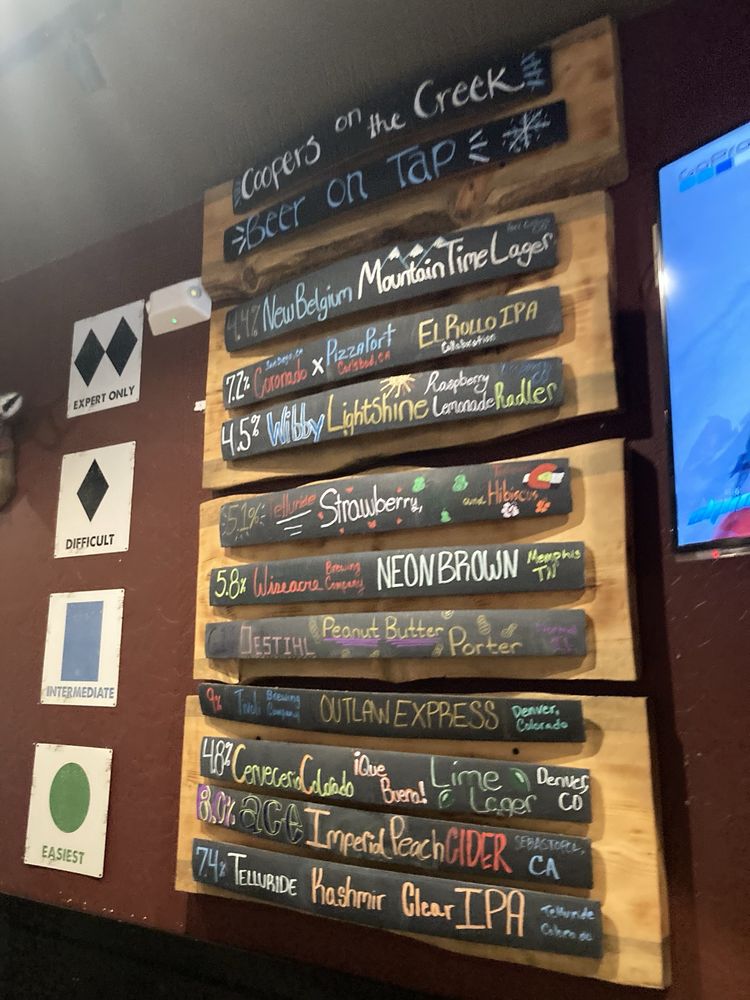 Coopers on the Creek
Beer on Tap
4.4% New Belgium Mountain Time Lager
7.2% San Diego, CA Coronado x Pizza Port Carlsbad, CA El Rollo IPA Collaboration
4.5% Wibby Lightshine Raspberry Lemonade Radler
5.1% Telluride Strawberry, and Hibiscus
5.8% Wiseacre Brewing Company NEON BROWN Memphis TN
DESTIHL Peanut Butter Porter
9% Tivoli Brewing Company OUTLAW EXPRESS Denver, Colorado
4.8% Cerveceria Colorado ¡Que Bueno! Lime Lager Denver, CO
8.0% ace Imperial Peach CIDER SEBASTOPOL, CA
7.4% TELLURIDE Kashmir Clear IPA Telluride Colorado
EXPERT ONLY
DIFFICULT
INTERMEDIATE
EASIEST
GoPro